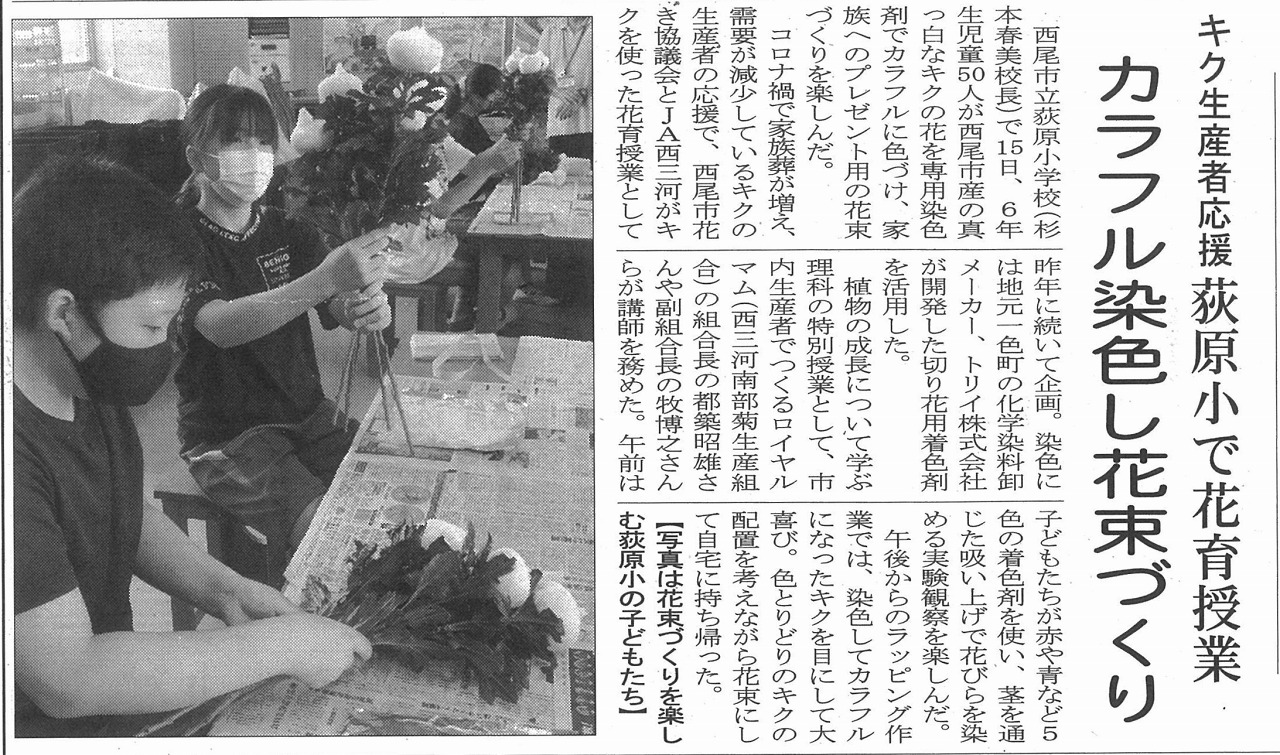 キク生産者応援 荻原小で花育授業
カラフル染色し花束づくり
西尾市立荻原小学校（杉
本春美校長）で15日、６年
生児童50人が西尾市産の真
っ白なキクの花を専用染色
剤でカラフルに色づけ、家
族へのプレゼント用の花束
づくりを楽しんだ。
コロナ禍で家族葬が増え、
需要が減少しているキクの
生産者の応援で、西尾市花
き協議会とＪＡ西三河がキ
クを使った花育授業として
昨年に続いて企画。染色に
は地元一色町の化学染料卸
メーカー、トリイ株式会社
が開発した切り花用着色剤
を活用した。
植物の成長について学ぶ
理科の特別授業として、市
内生産者でつくるロイヤル
マム（西三河南部菊生産組
合）の組合長の都築昭雄さ
んや副組合長の牧博之さん
らが講師を務めた。午前は
子どもたちが赤や青など５
色の着色剤を使い、茎を通
じた吸い上げで花びらを染
める実験観察を楽しんだ。
午後からのラッピング作
業では、染色してカラフル
になったキクを目にして大
喜び。色とりどりのキクの
配置を考えながら花束にし
て自宅に持ち帰った。
【写真は花束づくりを楽し
む荻原小の子どもたち】
BENIG